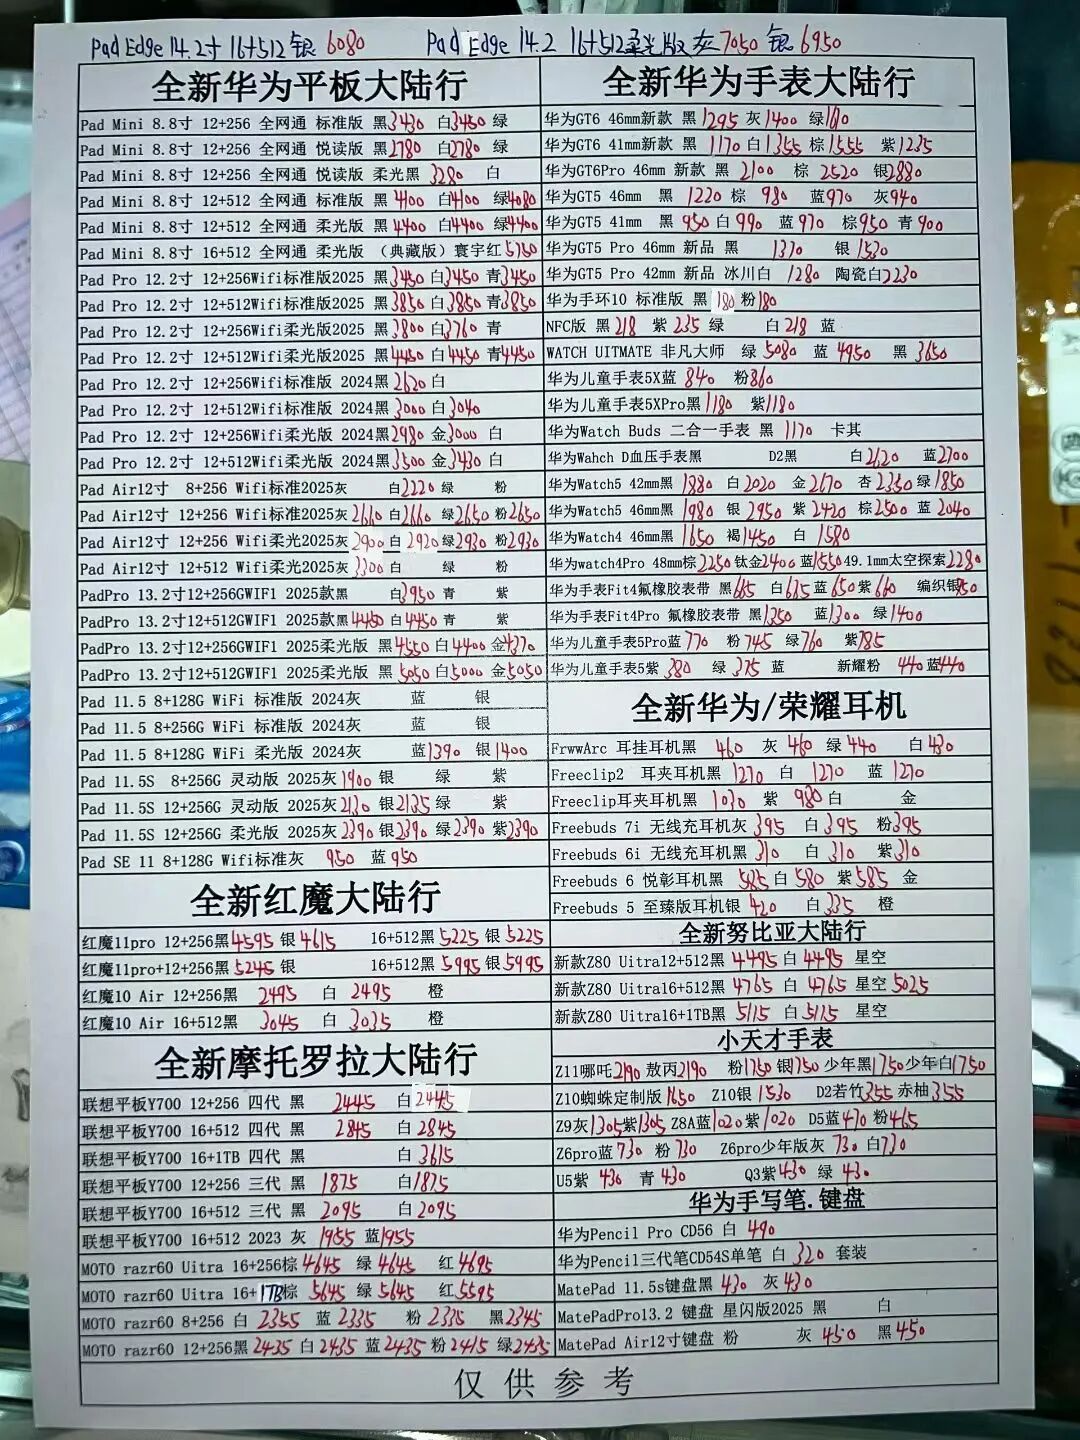 Pad Edge 14.2寸 16+512 银 6080 Pad Edge 14.2 16+512柔光版 灰7050 银 6950
全新华为平板大陆行
Pad Mini 8.8寸 12+256 全网通 标准版 黑3430 白3450 绿
Pad Mini 8.8寸 12+256 全网通 悦读版 黑2780 白2780 绿
Pad Mini 8.8寸 12+256 全网通 悦读版 柔光黑 3280 白
Pad Mini 8.8寸 12+512 全网通 标准版 黑4100 白4100 绿4080
Pad Mini 8.8寸 12+512 全网通 柔光版 黑4400 白4400 绿4400
Pad Mini 8.8寸 16+512 全网通 柔光版 （典藏版）寰宇红
Pad Pro 12.2寸 12+256Wifi标准版2025 黑3450 白3450 青3450
Pad Pro 12.2寸 12+512Wifi标准版2025 黑3850 白3850 青3850
Pad Pro 12.2寸 12+256Wifi柔光版2025 黑3800 白3760 青
Pad Pro 12.2寸 12+512Wifi柔光版2025 黑4450 白4450 青4450
Pad Pro 12.2寸 12+256Wifi标准版 2024黑2620 白
Pad Pro 12.2寸 12+512Wifi标准版 2024黑3000 白3040
Pad Pro 12.2寸 12+256Wifi柔光版 2024黑2980 金3000 白
Pad Pro 12.2寸 12+512Wifi柔光版 2024黑3500 金3430 白
Pad Air12寸 8+256 Wifi标准2025灰 白2220 绿 粉
Pad Air12寸 12+256 Wifi标准2025灰2660 白2660 绿2650 粉2650
Pad Air12寸 12+256 Wifi柔光2025灰2900 白2920 绿2930 粉2930
Pad Air12寸 12+512 Wifi柔光2025灰3300 白 绿 粉
PadPro 13.2寸12+256GWIF1 2025款黑 白3950 青 紫
PadPro 13.2寸12+512GWIF1 2025款黑4450 白4450 青 紫
PadPro 13.2寸12+256GWIF1 2025柔光版 黑4550 白4400 金4370
PadPro 13.2寸12+512GWIF1 2025柔光版 黑5050 白5000 金5050
Pad 11.5 8+128G WiFi 标准版 2024灰 蓝 银
Pad 11.5 8+256G WiFi 标准版 2024灰 蓝 银
Pad 11.5 8+128G WiFi 柔光版 2024灰 蓝1390 银1400
Pad 11.5S 8+256G 灵动版 2025灰1900 银 绿 紫
Pad 11.5S 12+256G 灵动版 2025灰2130 银2135 绿 紫
Pad 11.5S 12+256G 柔光版 2025灰2390 银2390 绿2390 紫2390
Pad SE 11 8+128G Wifi标准灰 950 蓝950
全新红魔大陆行
红魔11pro 12+256黑4595 银4615 16+512黑5225 银5225
红魔11pro+12+256黑5245 银 16+512黑5995 银5995
红魔10 Air 12+256黑 2495 白 2495 橙
红魔10 Air 16+512黑 3045 白 3035 橙
全新摩托罗拉大陆行
联想平板Y700 12+256 四代 黑 2445 白2445
联想平板Y700 16+512 四代 黑 2845 白2845
联想平板Y700 16+1TB 四代 黑 白3615
联想平板Y700 12+256 三代 黑 1875 白1875
联想平板Y700 16+512 三代 黑 2095 白2095
联想平板Y700 16+512 2023 灰 1955 蓝1955
MOTO razr60 Uitra 16+256棕4645 绿4645 红4695
MOTO razr60 Uitra 16+1TB棕5645 绿5645 红5595
MOTO razr60 8+256 白2355 蓝2335 粉2335 黑2345
MOTO razr60 12+256黑2435 白2435 蓝2435 粉2415 绿2435
全新华为手表大陆行
华为GT6 46mm新款 黑1295 灰1400 绿
华为GT6 41mm新款 黑1170 白1355 棕1555 紫1235
华为GT6Pro 46mm 新款 黑 2100 棕 2520 银2880
华为GT5 46mm 黑 1220 棕 980 蓝970 灰940
华为GT5 41mm 黑950 白990 蓝970 棕950 青900
华为GT5 Pro 46mm 新品 黑 1370 银1530
华为GT5 Pro 42mm 新品 冰川白 1280 陶瓷白2230
华为手环10 标准版 黑180 粉180
NFC版 黑218 紫235 绿 白218 蓝
WATCH UITMATE 非凡大师 绿5080 蓝4950 黑3650
华为儿童手表5X蓝 840 粉860
华为儿童手表5XPro黑1180 紫1180
华为Watch Buds 二合一手表 黑 1170 卡其
华为Wahch D血压手表黑 D2黑 白2620 蓝2700
华为Watch5 42mm黑1880 白2020 金2670 杏2350 绿1850
华为Watch5 46mm黑1980 银2950 紫2420 棕2500 蓝2040
华为Watch4 46mm黑1650 褐1450 白 1580
华为watch4Pro 48mm棕2250 钛金2400 蓝1550 49.1mm太空探索2280
华为手表Fit4氟橡胶表带 黑665 白615 蓝650 紫660 编织银
华为手表Fit4Pro 氟橡胶表带 黑1350 蓝1300 绿1400
华为儿童手表5Pro蓝 770 粉745 绿760 紫785
华为儿童手表5紫380 绿375 蓝 新耀粉 440 蓝440
全新华为/荣耀耳机
FrwwArc 耳挂耳机黑 460 灰460 绿440 白430
Freeclip2 耳夹耳机黑 1270 白 1270 蓝1270
Freeclip耳夹耳机黑 1030 紫980 白 金
Freebuds 7i 无线充耳机灰395 白395 粉395
Freebuds 6i 无线充耳机黑310 白310 紫310
Freebuds 6 悦彰耳机黑 585 白580 紫585 金
Freebuds 5 至臻版耳机银420 白335 橙
全新努比亚大陆行
新款Z80 Uitra12+512黑4495 白4495 星空
新款Z80 Uitra16+512黑4765 白4765 星空5025
新款Z80 Uitra16+1TB黑5115 白5115 星空
小天才手表
Z11哪吒2190 敖丙2190 粉1750 银1750 少年黑1750 少年白1750
Z10蜘蛛定制版1650 Z10银1530 D2若竹355 赤柚355
Z9灰1305 紫1305 Z8A蓝1020 紫1020 D5蓝470 粉465
Z6pro蓝730 粉730 Z6pro少年版灰 730 白730
U5紫 430 青430 Q3紫430 绿430
华为手写笔.键盘
华为Pencil Pro CD56 白 490
华为Pencil三代笔CD54S单笔 白320 套装
MatePad 11.5s键盘黑 430 灰430
MatePadPro13.2 键盘 星闪版2025 黑 白
MatePad Air12寸键盘 粉 灰 450 黑450
仅供参考